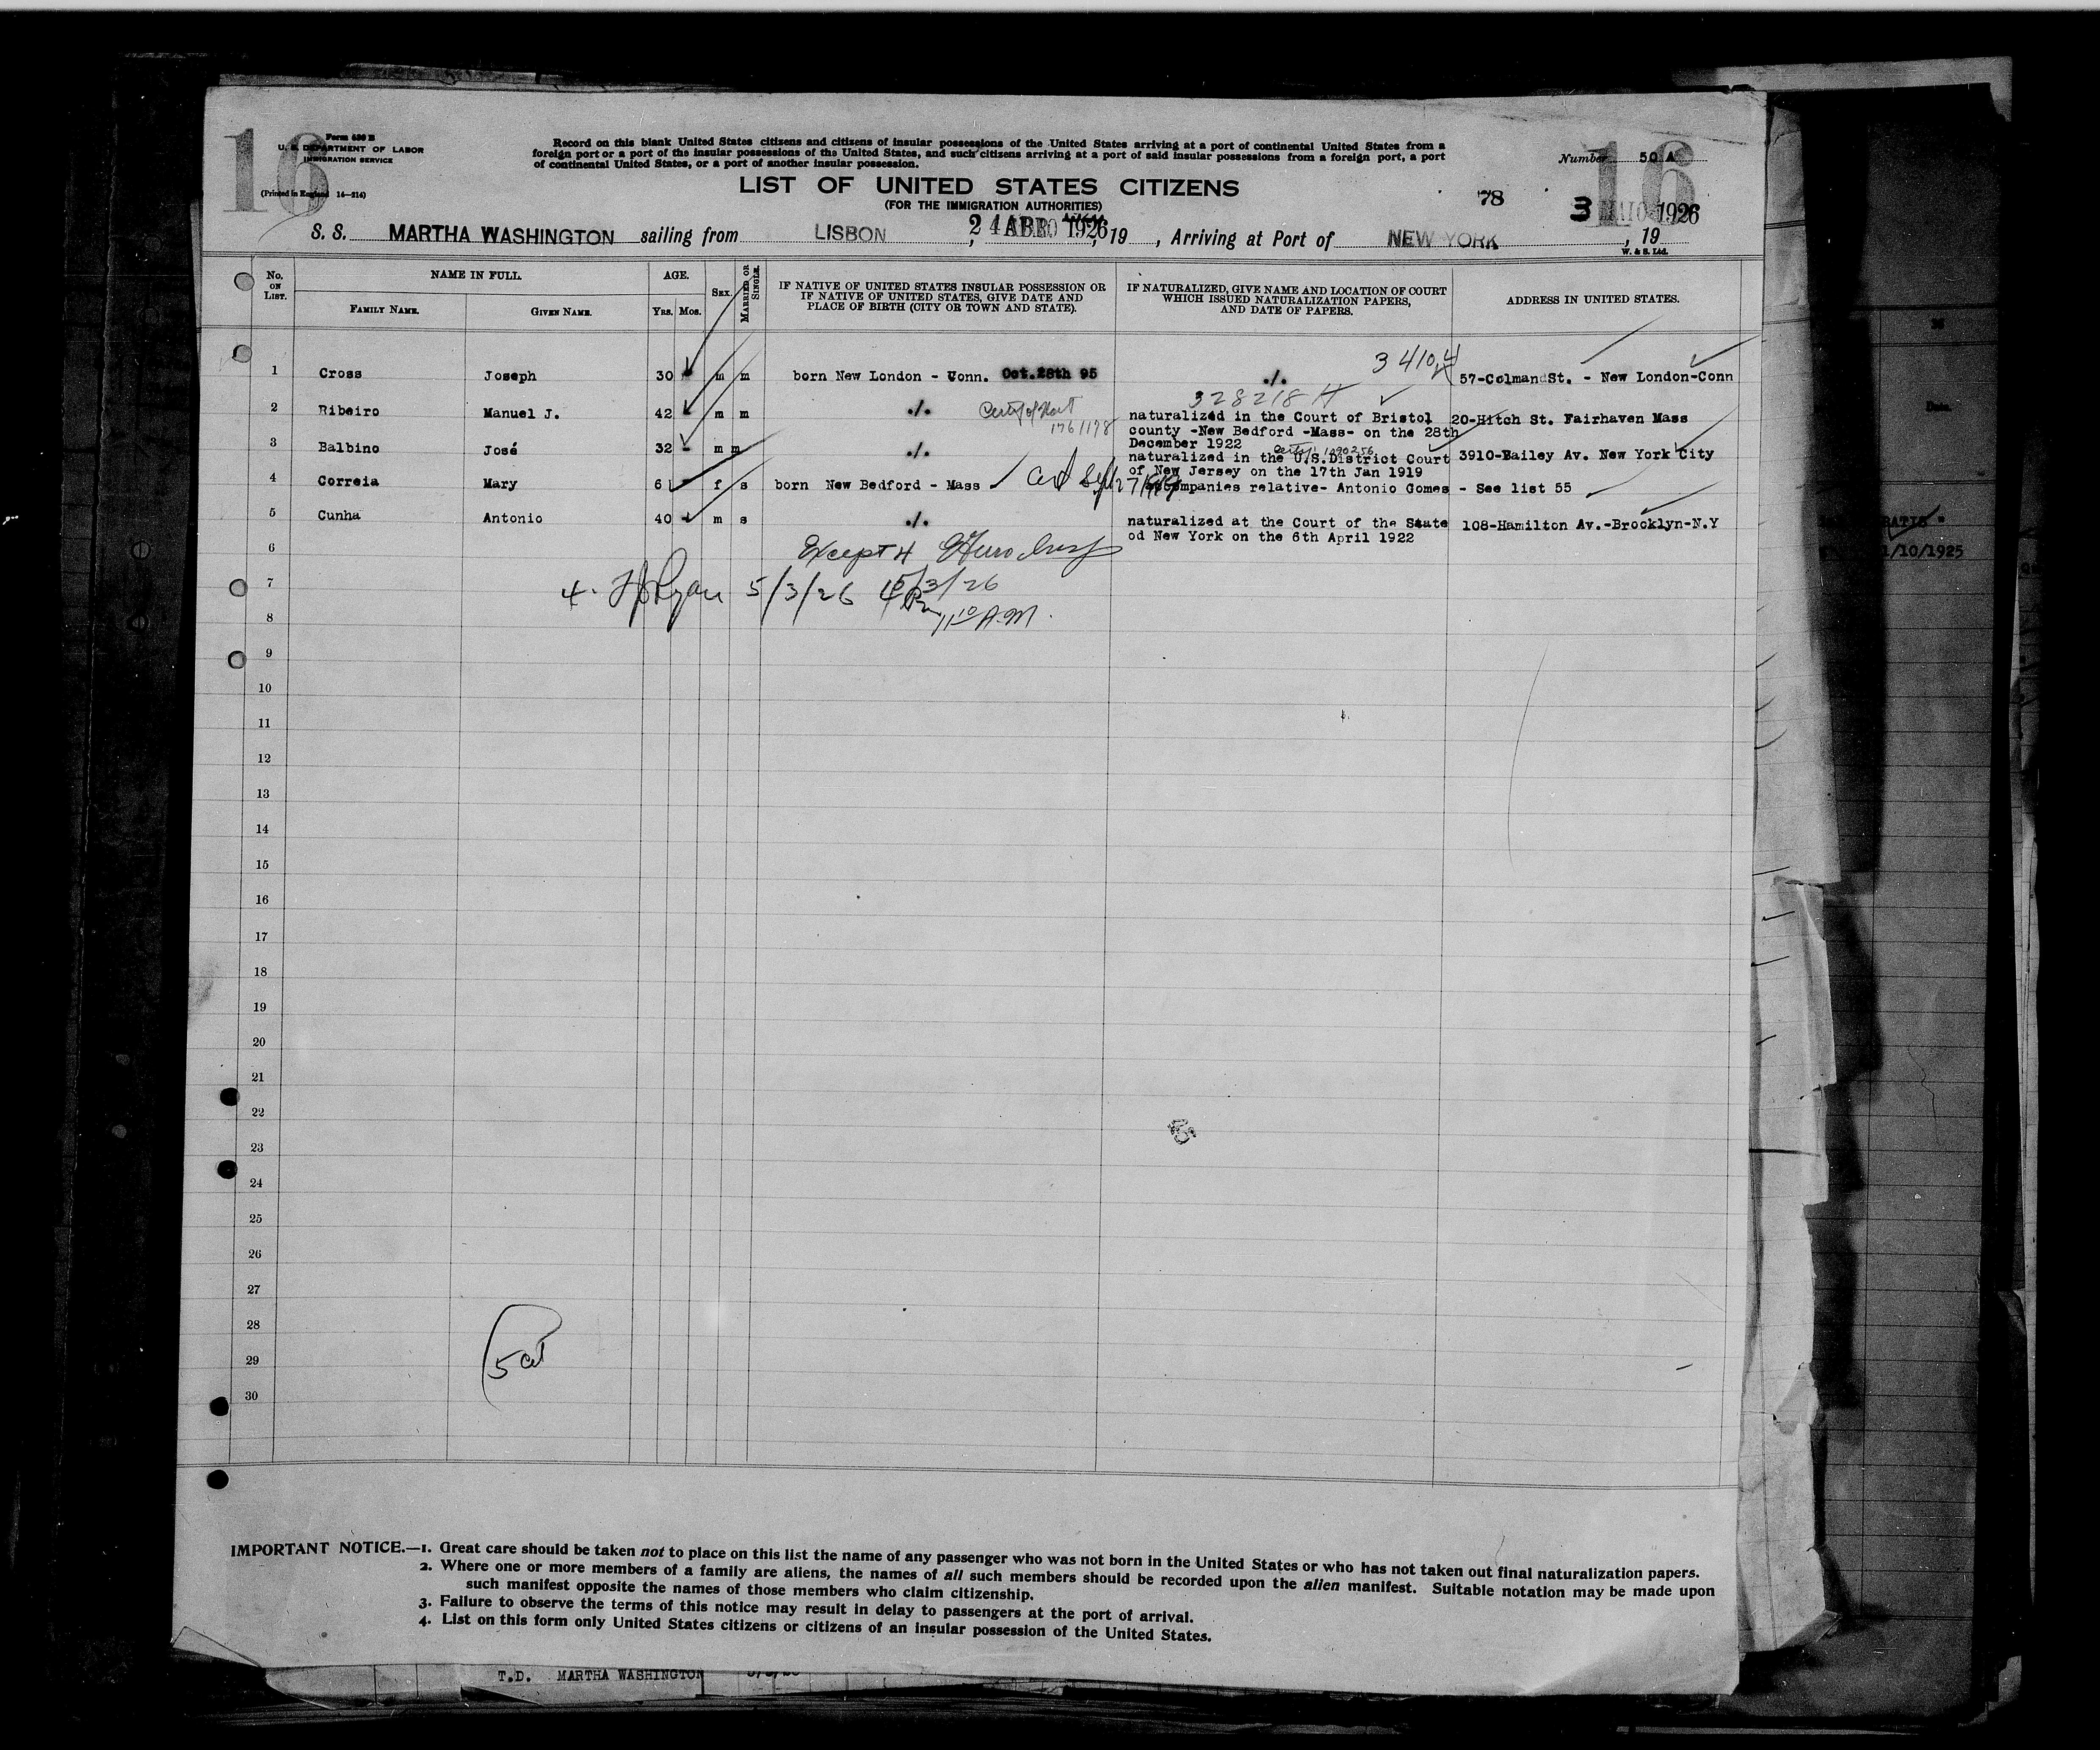 16
Form 630 B
U. S. DEPARTMENT OF LABOR
IMMIGRATION SERVICE
(Printed in England 14—214)
Record on this blank United States citizens and citizens of insular possessions of the United States arriving at a port of continental United States from a
foreign port or a port of the insular possessions of the United States, and such citizens arriving at a port of said insular possessions from a foreign port, a port
of continental United States, or a port of another insular possession.
Number 50 A
16
LIST OF UNITED STATES CITIZENS
(FOR THE IMMIGRATION AUTHORITIES)
78
3 MAIO 1926
S. S. MARTHA WASHINGTON sailing from LISBON, 24 ABR 1926, 19 , Arriving at Port of NEW YORK, 19
W. & S. Ltd.
No. ON LIST. NAME IN FULL. AGE. SEX. MARRIED OR SINGLE. IF NATIVE OF UNITED STATES INSULAR POSSESSION OR IF NATIVE OF UNITED STATES, GIVE DATE AND PLACE OF BIRTH (CITY OR TOWN AND STATE). IF NATURALIZED, GIVE NAME AND LOCATION OF COURT WHICH ISSUED NATURALIZATION PAPERS, AND DATE OF PAPERS. ADDRESS IN UNITED STATES.
FAMILY NAME. GIVEN NAME. YRS. MOS.
3 4104
1 Cross Joseph 30 m m born New London - Conn. Oct.28th 95 ./. 57-Colman St. - New London-Conn
328218 H
2 Ribeiro Manuel J. 42 - m m ./. 1761178 naturalized in the Court of Bristol 20-Hitch St. Fairhaven Mass
county -New Bedford -Mass- on the 28th
December 1922
3 Balbino José 32 - m m ./. naturalized in the U.S.District Court 3910-Bailey Av. New York City
1090256
of New Jersey on the 17th Jan 1919
4 Correia Mary 61 f s born New Bedford - Mass Cert Sept 27/ accompanies relative- Antonio Gomes - See list 55
5 Cunha Antonio 40 - m s ./. naturalized at the Court of the State 108-Hamilton Av.-Brocklyn-N.Y
od New York on the 6th April 1922
6
Except 4
7
4. Ryan 5/3/26 5/3/26
8
11 10 A.M.
9
10
11
12
13
14
15
16
17
18
19
20
21
22
23
24
25
26
27
28
29
30
5 cit
IMPORTANT NOTICE.—1. Great care should be taken not to place on this list the name of any passenger who was not born in the United States or who has not taken out final naturalization papers.
2. Where one or more members of a family are aliens, the names of all such members should be recorded upon the alien manifest. Suitable notation may be made upon
such manifest opposite the names of those members who claim citizenship.
3. Failure to observe the terms of this notice may result in delay to passengers at the port of arrival.
4. List on this form only United States citizens or citizens of an insular possession of the United States.
T.D. MARTHA WASHINGTON
Date.
1/10/1925